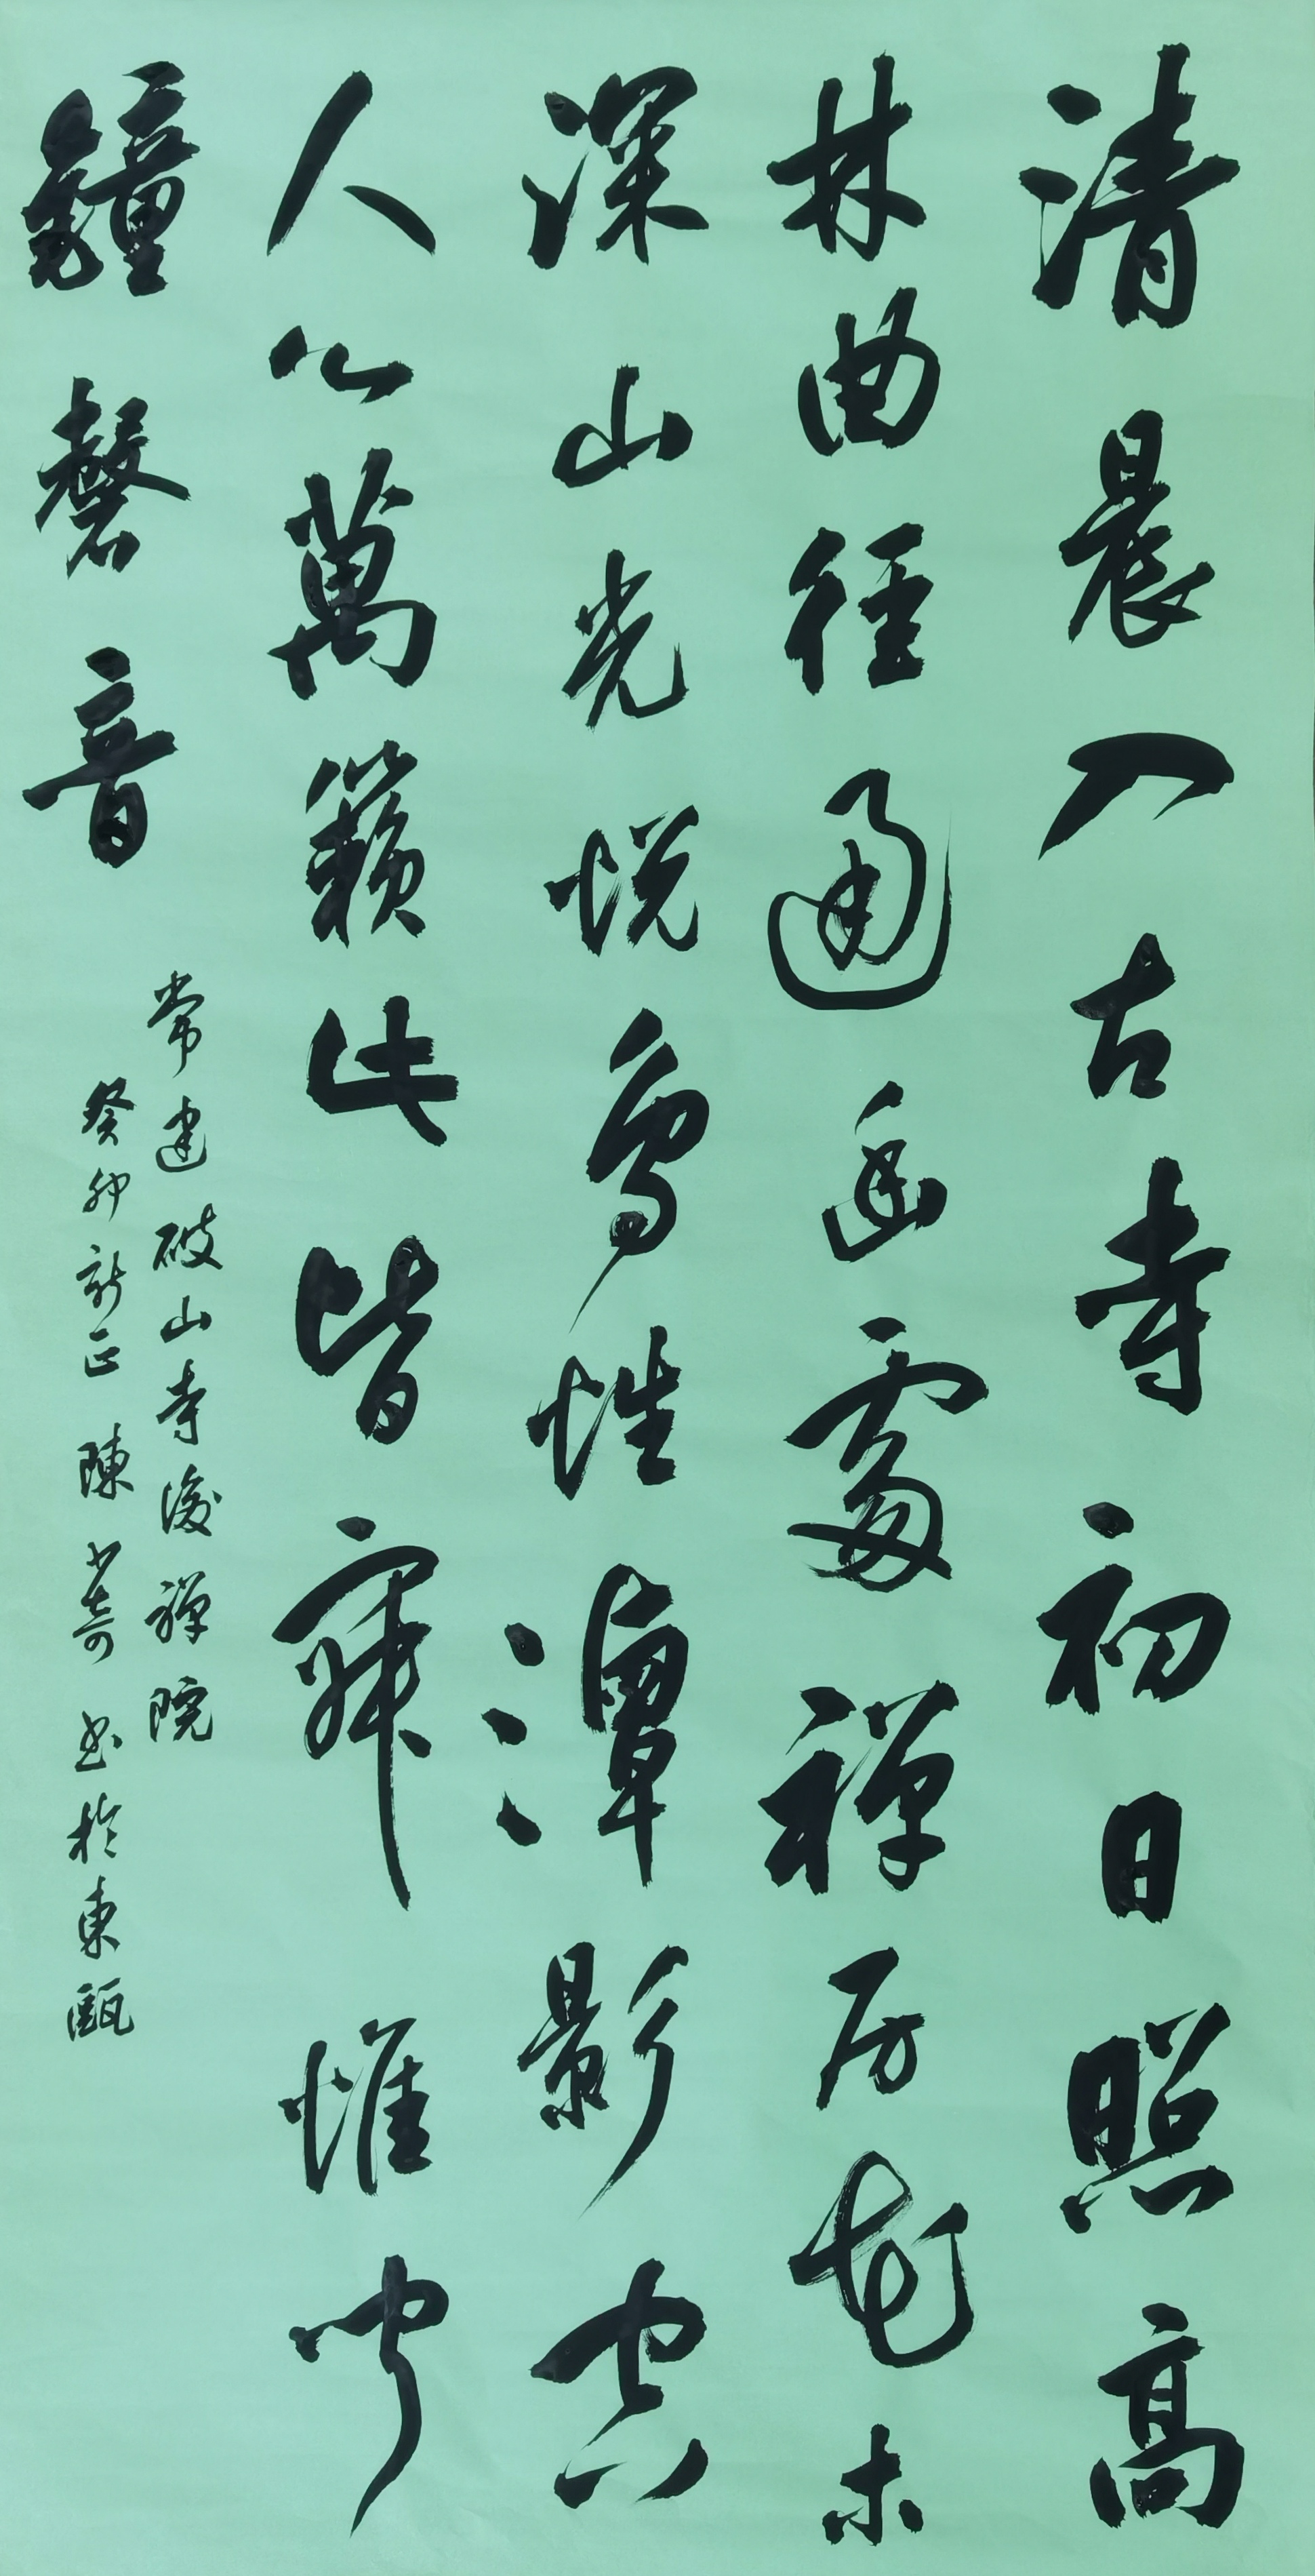 清晨入古寺初日照高
林曲径通幽處禅房花木
深山光悦鳥性潭影空
人心萬籟此皆寂惟聞
鐘磬音
常建破山寺後禅院
癸卯新正陳 书於東甌